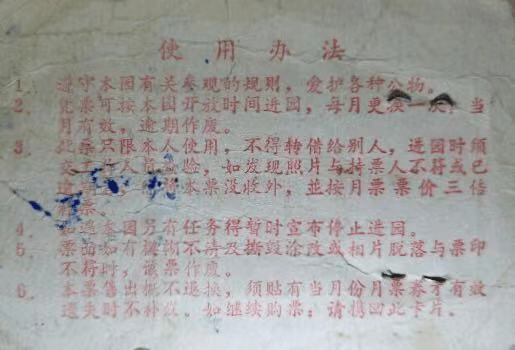 使用办法
1. 遵守本园有关参观的规则，爱护各种公物。
2. 凭票可按本园开放时间进园，每月更换一次，当
月有效，逾期作废。
3. 此票只限本人使用，不得转借给别人，进园时须
交工作人员查验，如发现照片与持票人不符或已
本票没收外，並按月票票价三倍
票。
4. 如遇本园另有任务得暂时宣布停止进园。
5. 票面如有模糊不清及撕毁涂改或相片脱落与票印
不符时，该票作废。
6. 本票售出概不退换，须贴有当月份月票券才有效
遗失时不补发。如继续购票：请携回此卡片。